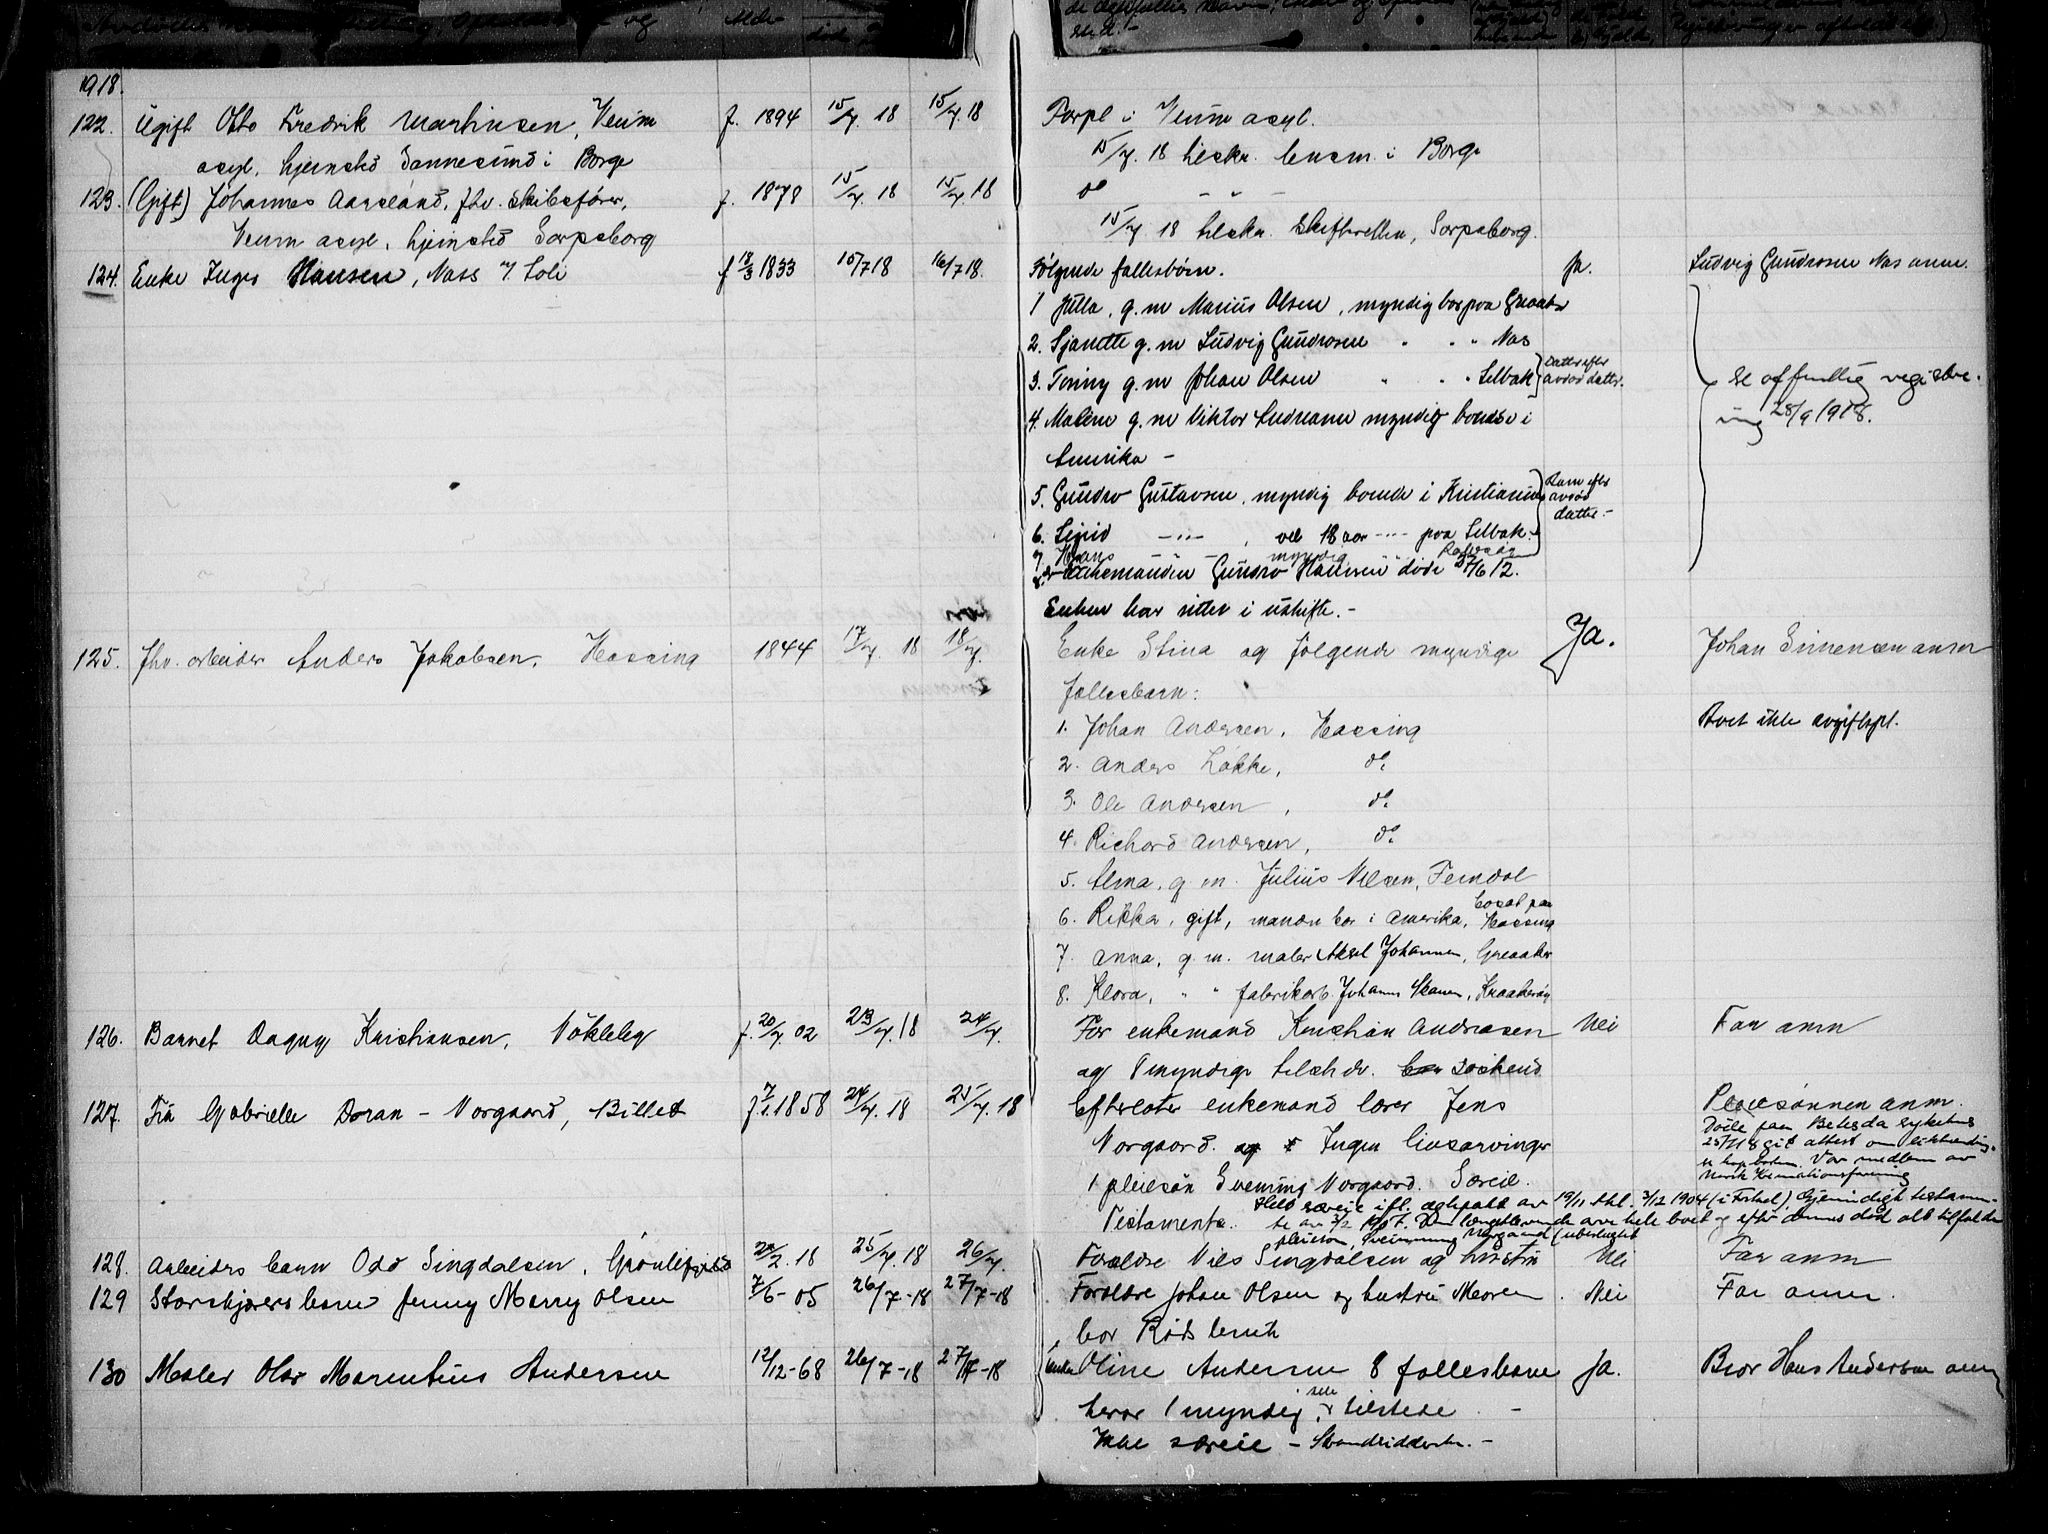 1918.
122. Ugift Otto Fredrik Martinsen, Veum f. 1894 15/7. 18 15/7. 18 Forpl i Veum asyl.
asyl, hjemsted Sannesund i Borge 15/7. 18 tilskr. lensm. i Borge
123. (Gift) Johannes Aarsland, fhv. skibsfører, f. 1878 15/7. 18 15/7. 18 do — " —
Veum asyl, hjemsted Sarpsborg 15/7. 18 tilskr. skifteretten, Sarpsborg.
124. Enke Inger Hansen, Næss v/ Soli f 18/3 1833 15/7 18 16/7 18. Følgende fællesbørn. Ja. Ludvig Gundrosen Næs anm.
1 Julla, g. m Marius Olsen, myndig bor paa Greaaker
2. Sjanette g. m Ludvig Gundrosen " " " Næs
3. Tonny g. m Johan Olsen " " " Selbak } Datter efter avdød datter. Se offentlig registre-
4. Malene g. m Viktor Andreasen myndig boende i ing 28/9 1918.
Amerika —
5. Gundro Gustavsen, myndig boende i Kristiania } Barn efter avdød datter. —
6. Sigrid —"—, vel 18 aar —"— paa Selbak. —
7 Hans — " — myndig
Enkemanden Gundro Hansen døde 27/6 12.
Enken har sittet i uskifte. —
125. Fhv. arbeider Anders Jakobsen, Hassing 1844 17/7. 18 18/7. Enke Stina og følgende myndige Ja. Johan Simensen anm
fællesbarn:
1. Johan Andersen, Hassing Boet ikke avgiftspl.
2. Anders Løkke, do.
3. Ole Andersen, do.
4. Richard Andersen, do.
5. Alma, g. m. Julius Nilsen, Femdal
6. Rikka, gift, manden bor i Amerika, bosat paa Hassing
7. Anna, g. m. maler Aksel Johansen, Greaaker
8. Klara, " " fabrikarb. Johannes Skaven, Kraakerøy
126. Barnet Dagny Kristiansen, Nøkleby f. 20/7. 02 23/7. 18 24/7. Far enkemand Kristian Andreasen Nei Far anm
og 1 myndig tilstedev. søskend
127. Fru Gabrielle Doran-Norgaard, Billet f. 7/1. 1858 24/7. 18 25/7. 18 Efterlater enkemand lærer Jens Pleiesønnen anm.
Norgaard. Ingen livsarvinger Døde paa Betesda sykehus
25/7 18 git attest om
Var medlem av
1 pleiesøn Svenning Norgaard. Særeie. Norsk Kremationsforening
Helt særeie ifl. ægtepakt av 19/11 thl. 3/12 1904 (i Fstad). Gjensidigt testamen-
Testamente. te av 3/2 1907. Den længstlevende arve hele boet og efter dennes død alt tilfalde
pleiesøn Svenning Norgaard
128. Arbeiders barn Odd Singdalsen, Grönli 24/2. 18 25/7. 18 26/7. Forældre Nils Singdalsen og hustru Nei Far anm
129 Storskjærers barn Jenny Marry Olsen 7/6 - 05 26/7-18 27/7-18 Forældre Johan Olsen og hustru Maren. Nei Far anm.
bor Röds bruk
130 Mæler Olav Marentius Andersen 12/12-68 26/7-18 27/7-18 Enke Oline Andersen 8 fællesbarn Ja. Bror Hans Andersen anm
hvorav 1 myndig, tilstede. —
Ikke særeie —